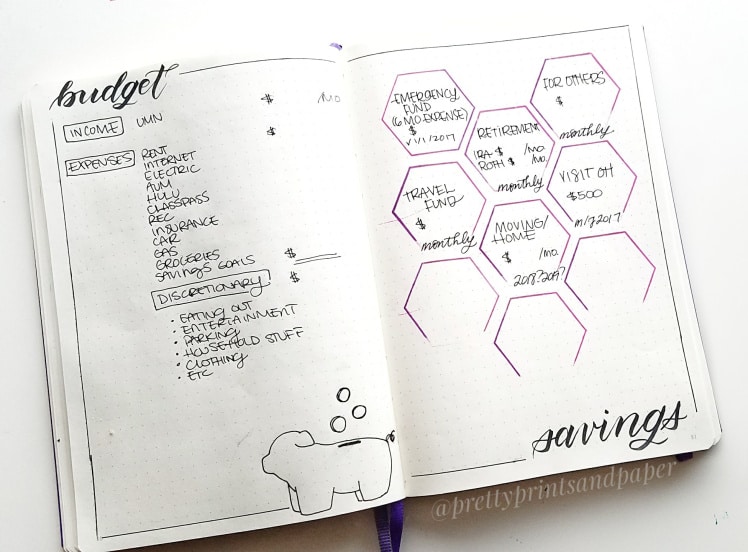 budget
$ /MO
INCOME UMN
$
EXPENSES RENT
INTERNET
ELECTRIC
AUM
HULU
CLASSPASS
REC
INSURANCE
CAR
GAS
GROCERIES
SAVINGS GOALS $
DISCRETIONARY $
• EATING OUT
• ENTERTAINMENT
• PARKING
• HOUSEHOLD STUFF
• CLOTHING
• ETC
EMERGENCY
FUND
(6 MO. EXPENSE)
$
√ 1/1/2017
RETIREMENT
IRA $ /MO.
ROTH $ /MO.
monthly
FOR OTHERS
$
monthly
TRAVEL
FUND
$
monthly
MOVING/
HOME
$ /MO.
2018?2019?
VISIT OH
$500
2017
savings
@prettyprintsandpaper